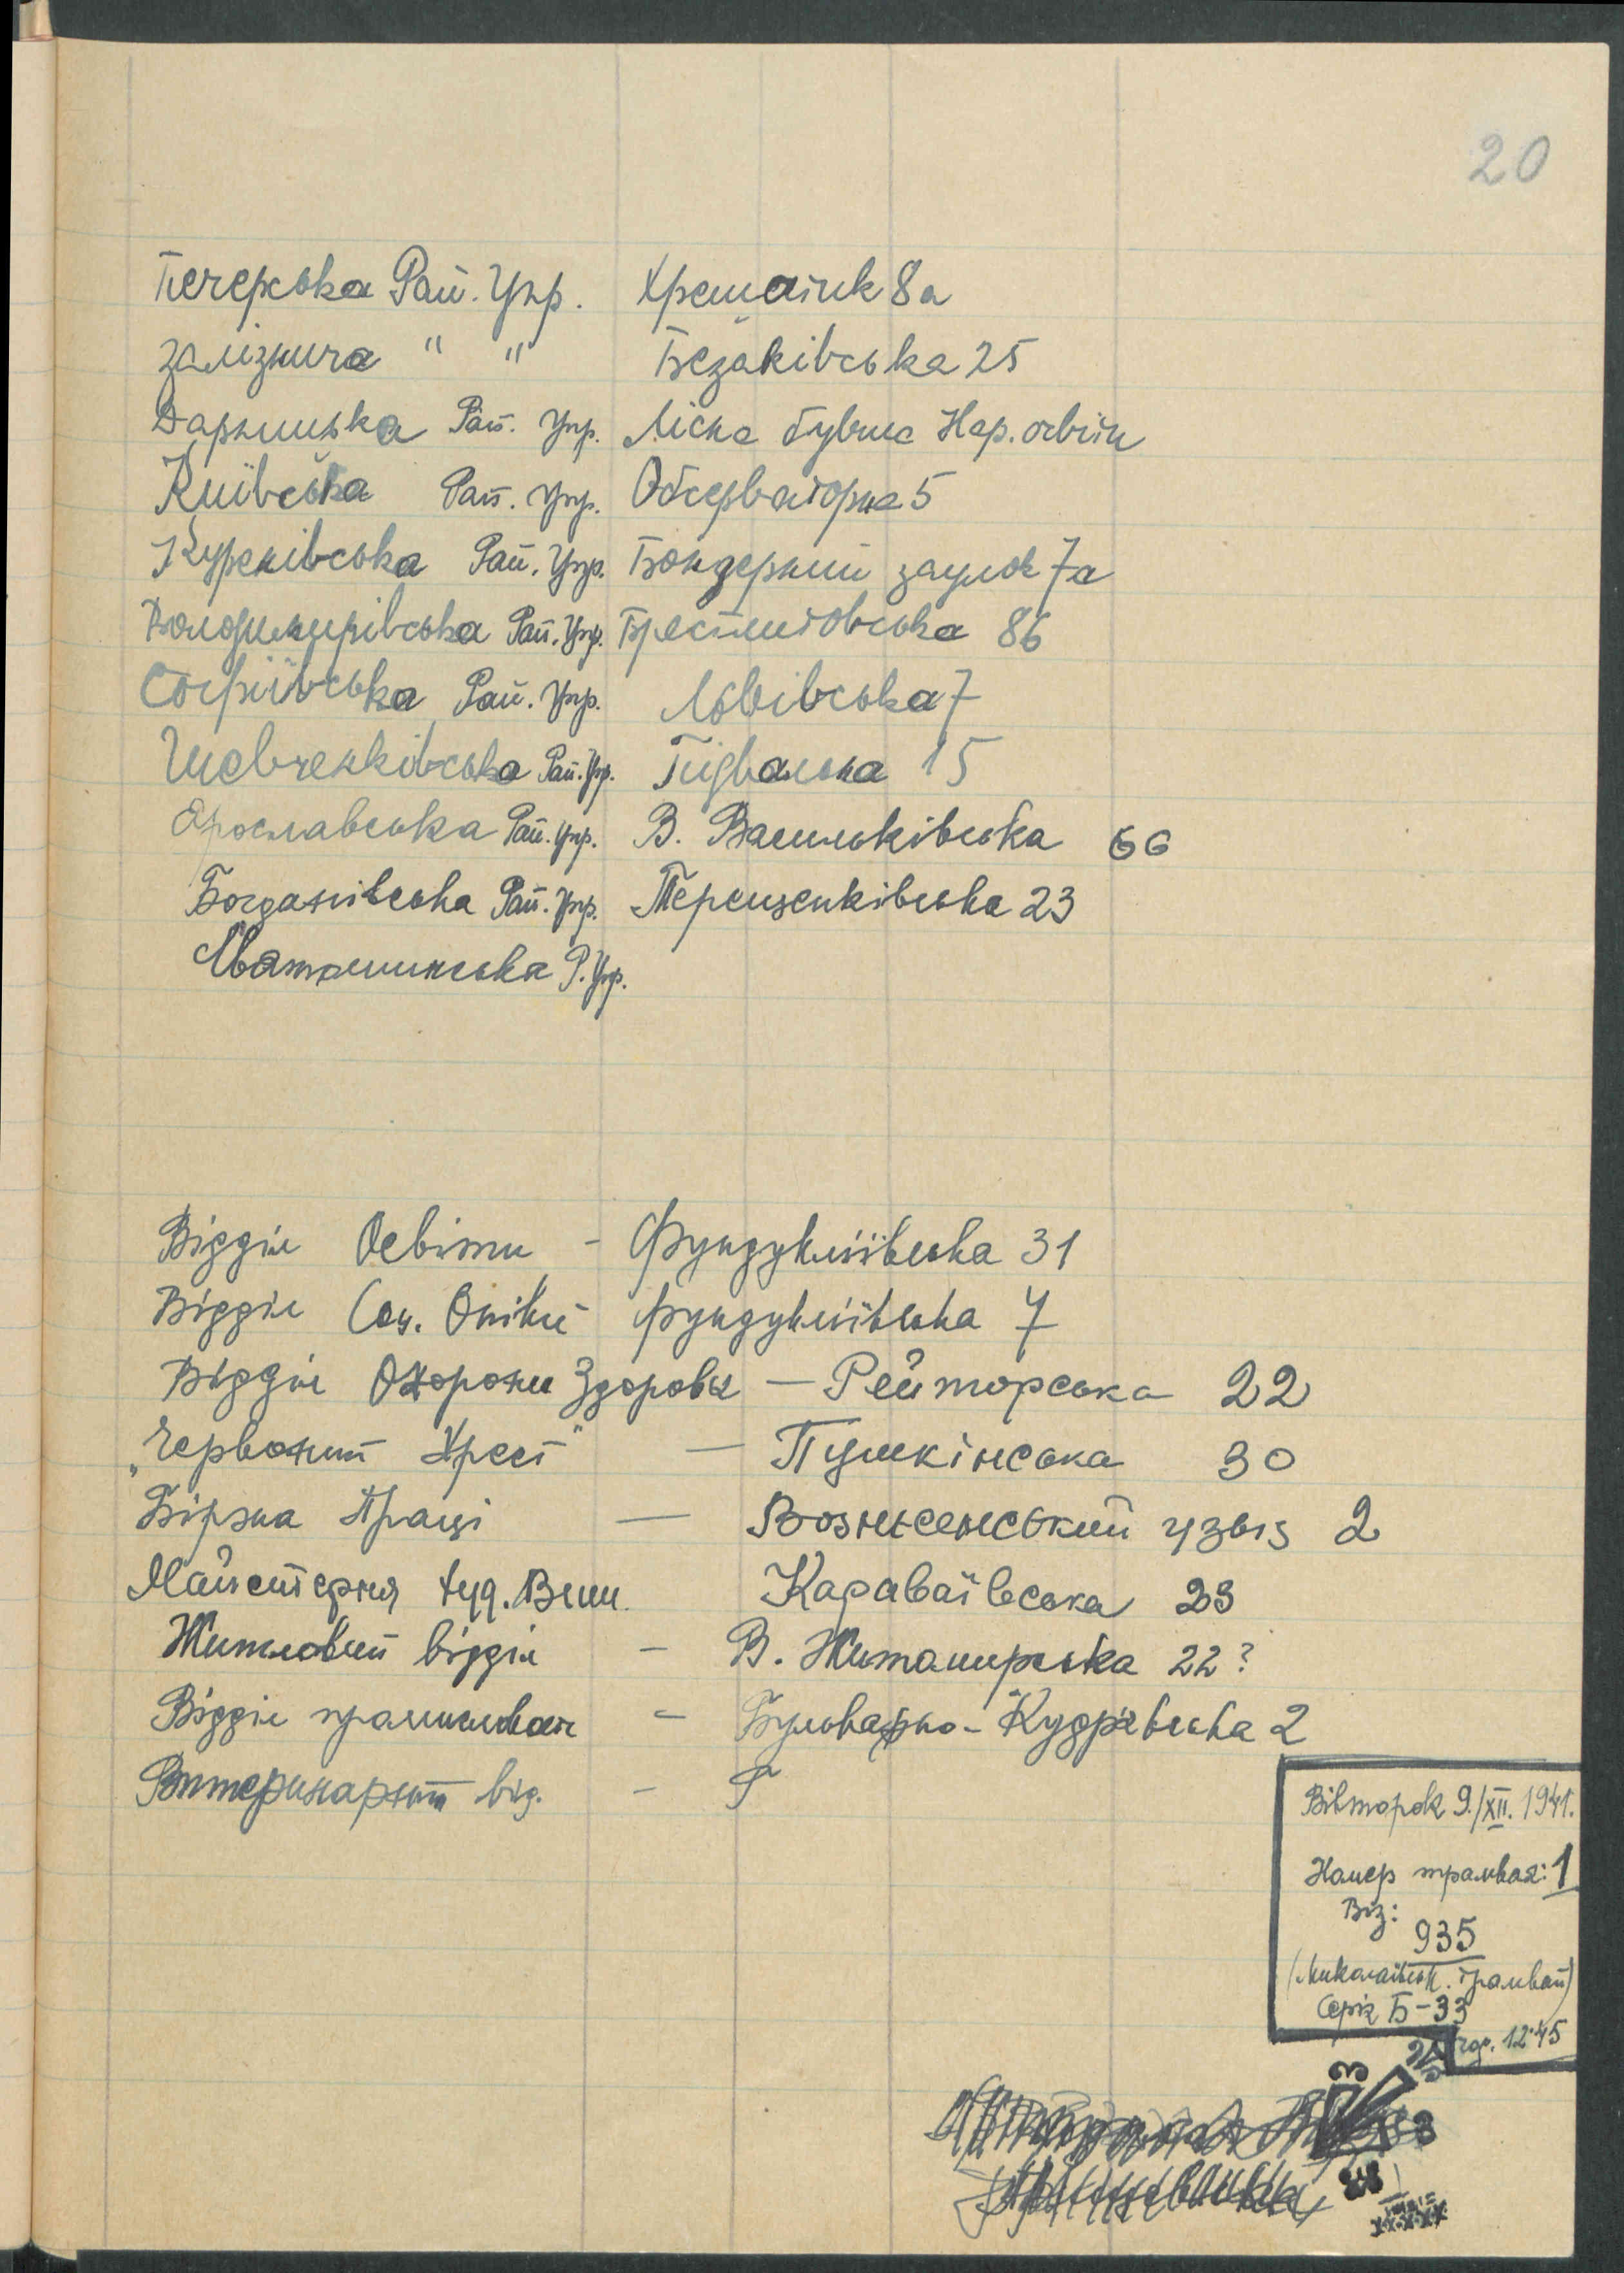 20
Печерська Рай. Упр. Хрещатик 8а
Залізнича " " Безаківська 25
Дарницька Рай. Упр. Лісна Нар. освіти
Київська Рай. Упр. Обсерваторна 5
Куренівська Рай. Упр. Бондерний заулок 7а
Володимирівська Рай. Упр. Брестлитовська 86
Софіївська Рай. Упр. Львівська 7
Шевченківська Рай. Упр. Підвальна 15
Ярославська Рай. Упр. В. Васильківська 66
Богданівська Рай. Упр. Терещенківська 23
Святошинська Р. Упр.
Відділ Освіти - Фундукліївська 31
Відділ Соц. Опіки - Фундукліївська 7
Відділ Охорони Здоровя — Рейторська 22
„Червоний Хрест" — Пушкінська 30
Біржа Праці — Вознесенський узвіз 2
Майстерня худ. Виш. Караваївська 23
Житловий відділ - В. Житомирська 22?
Відділ - Бульварно-Кудрявська 2
Витеринарний від. -
Вівторок 9./XII. 1941.
Номер трамвая: 1
Віз:
935
(Миколаївськ. трамвай)
Серія Б-33
год. 12:45